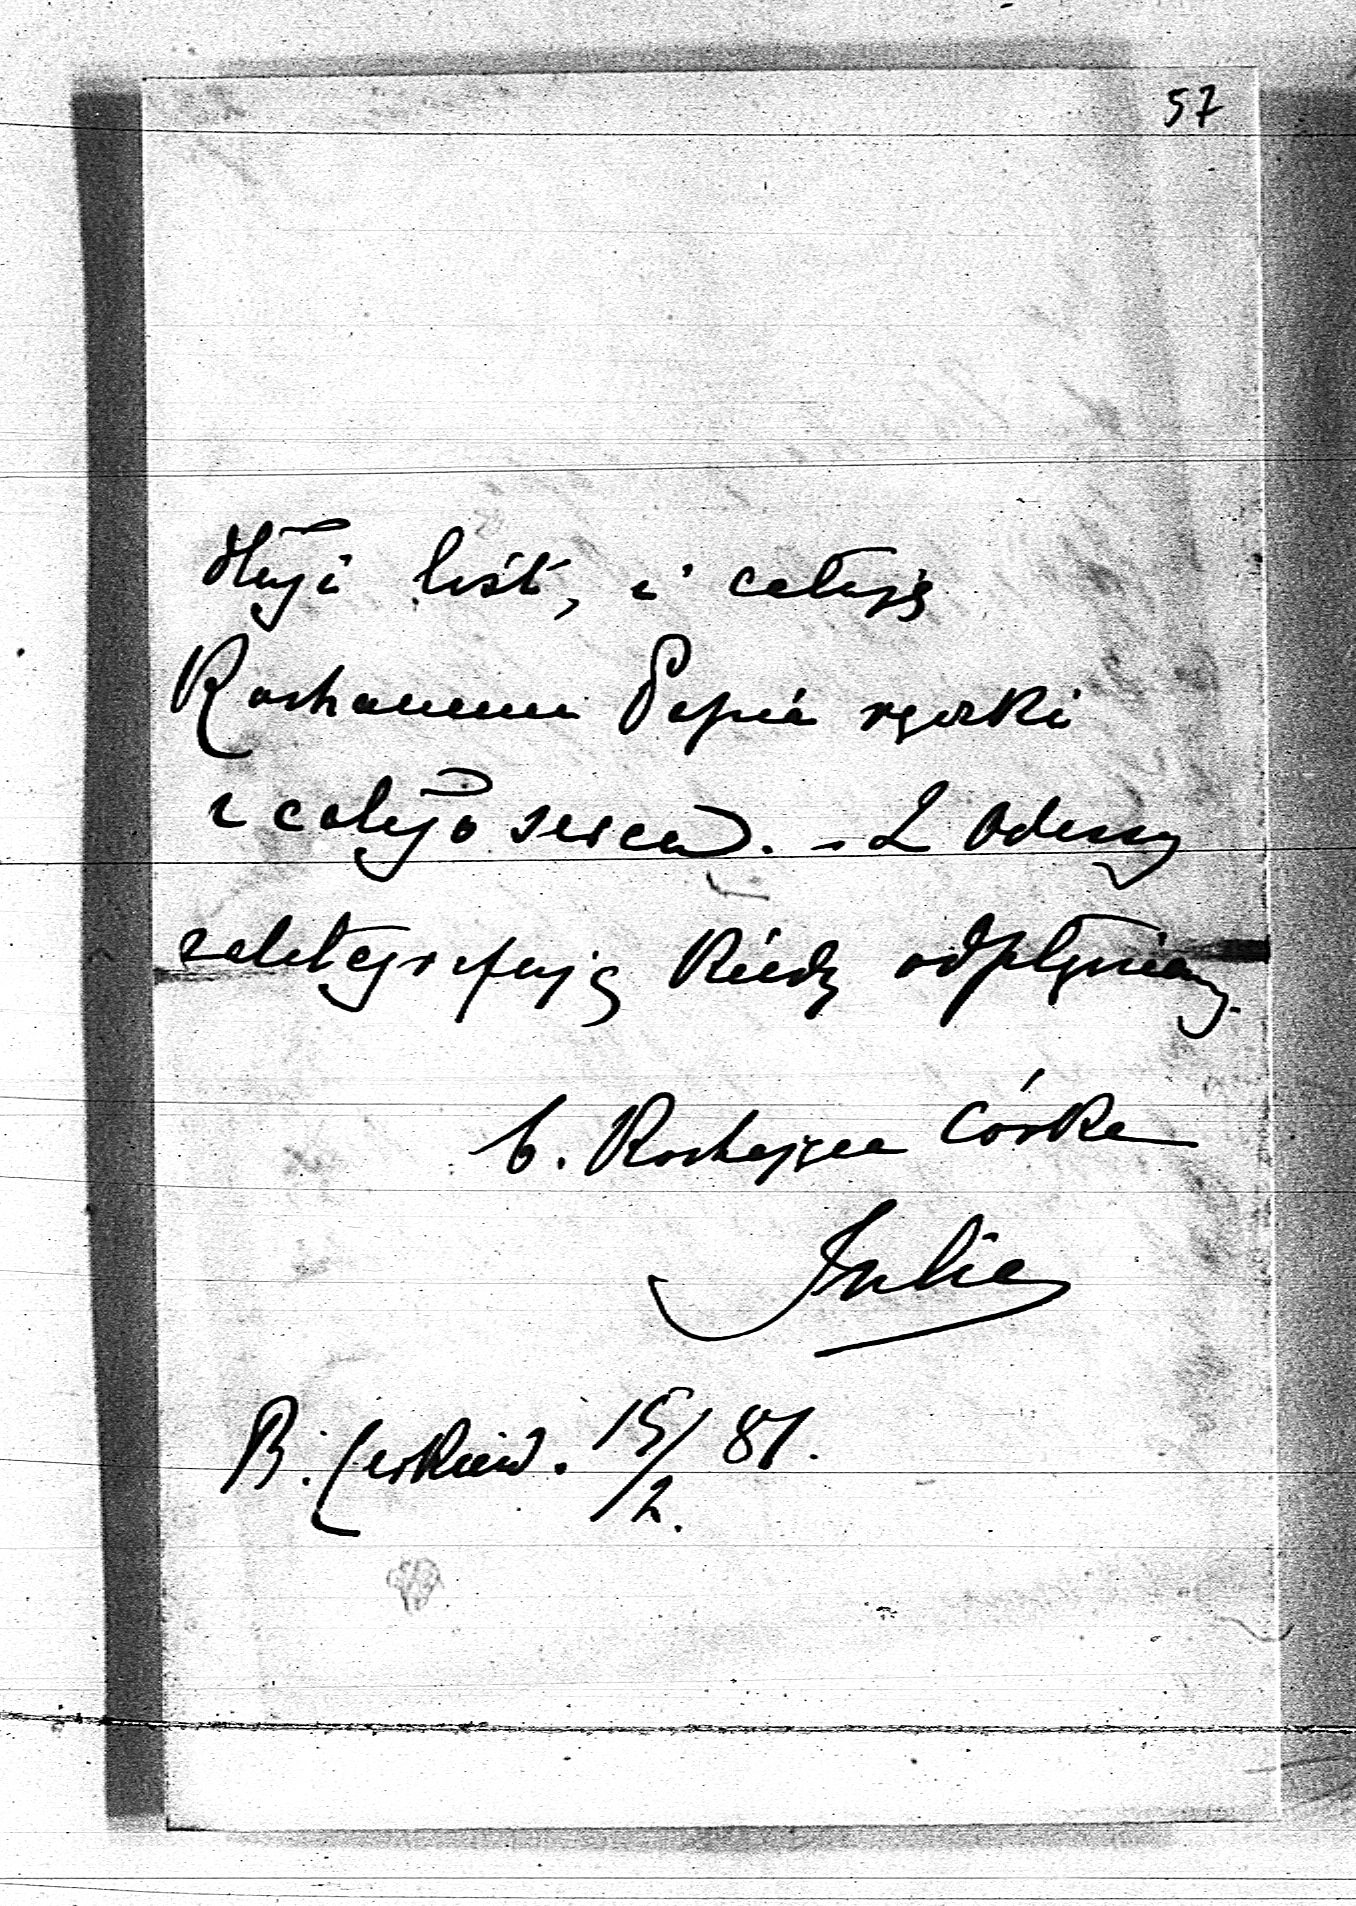 57
długi list, i całuję
Kochanemu Papie rączki
z całego serca. – Z Odessy
zatelegrafuję kiedy odpłyniemy.
b. Kochająca córka
Julia
B. Cerkiew. 15/2. 81.